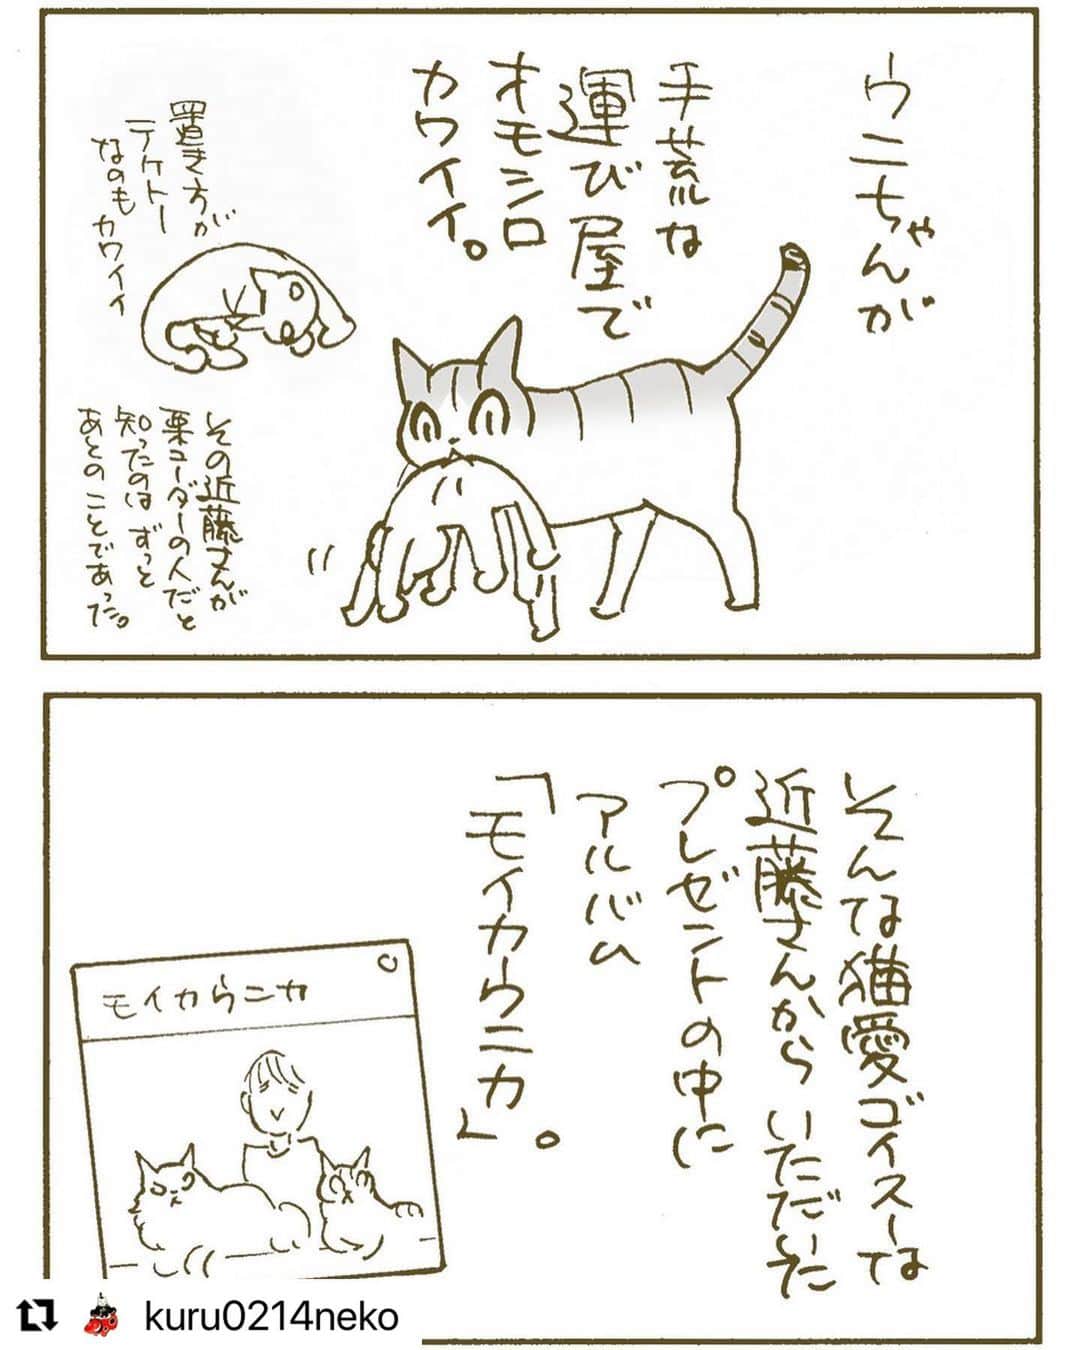 ウニちゃんが
手荒な
運び屋で
オモシロ
カワイイ。
置き方が
テケトー
なのも カワイイ
その近藤さんが
栗コーダーの人だと
知ったのは ずっと
あとの ことであった。
そんな猫愛ゴイスーな
近藤さんから いただいた
プレゼントの中に
アルバム
「モイカウニカ」。
モイカウニカ
kuru0214neko